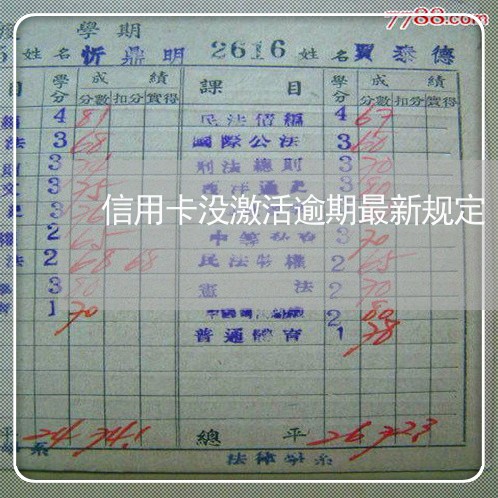 7788.com
學期
姓名 忻鼎明 2616 姓名 賈泰德
目 學分 成績 課目 學分 成績
分數 扣分 實得 分數 扣分 實得
4 81 民法債編 4 67
法 3 68 國際公法 3 60
3 刑法總則 3 70
3 75 西洋通史 3 80
信用卡没激活逾期最新规定
2 65 3 70
法 2 68 68 民法物權 2 65
3 80 憲法 2 70
1 70 2 80
普通體育 1 78
平 24 74.1 總平 26 72.3
系 法律學系